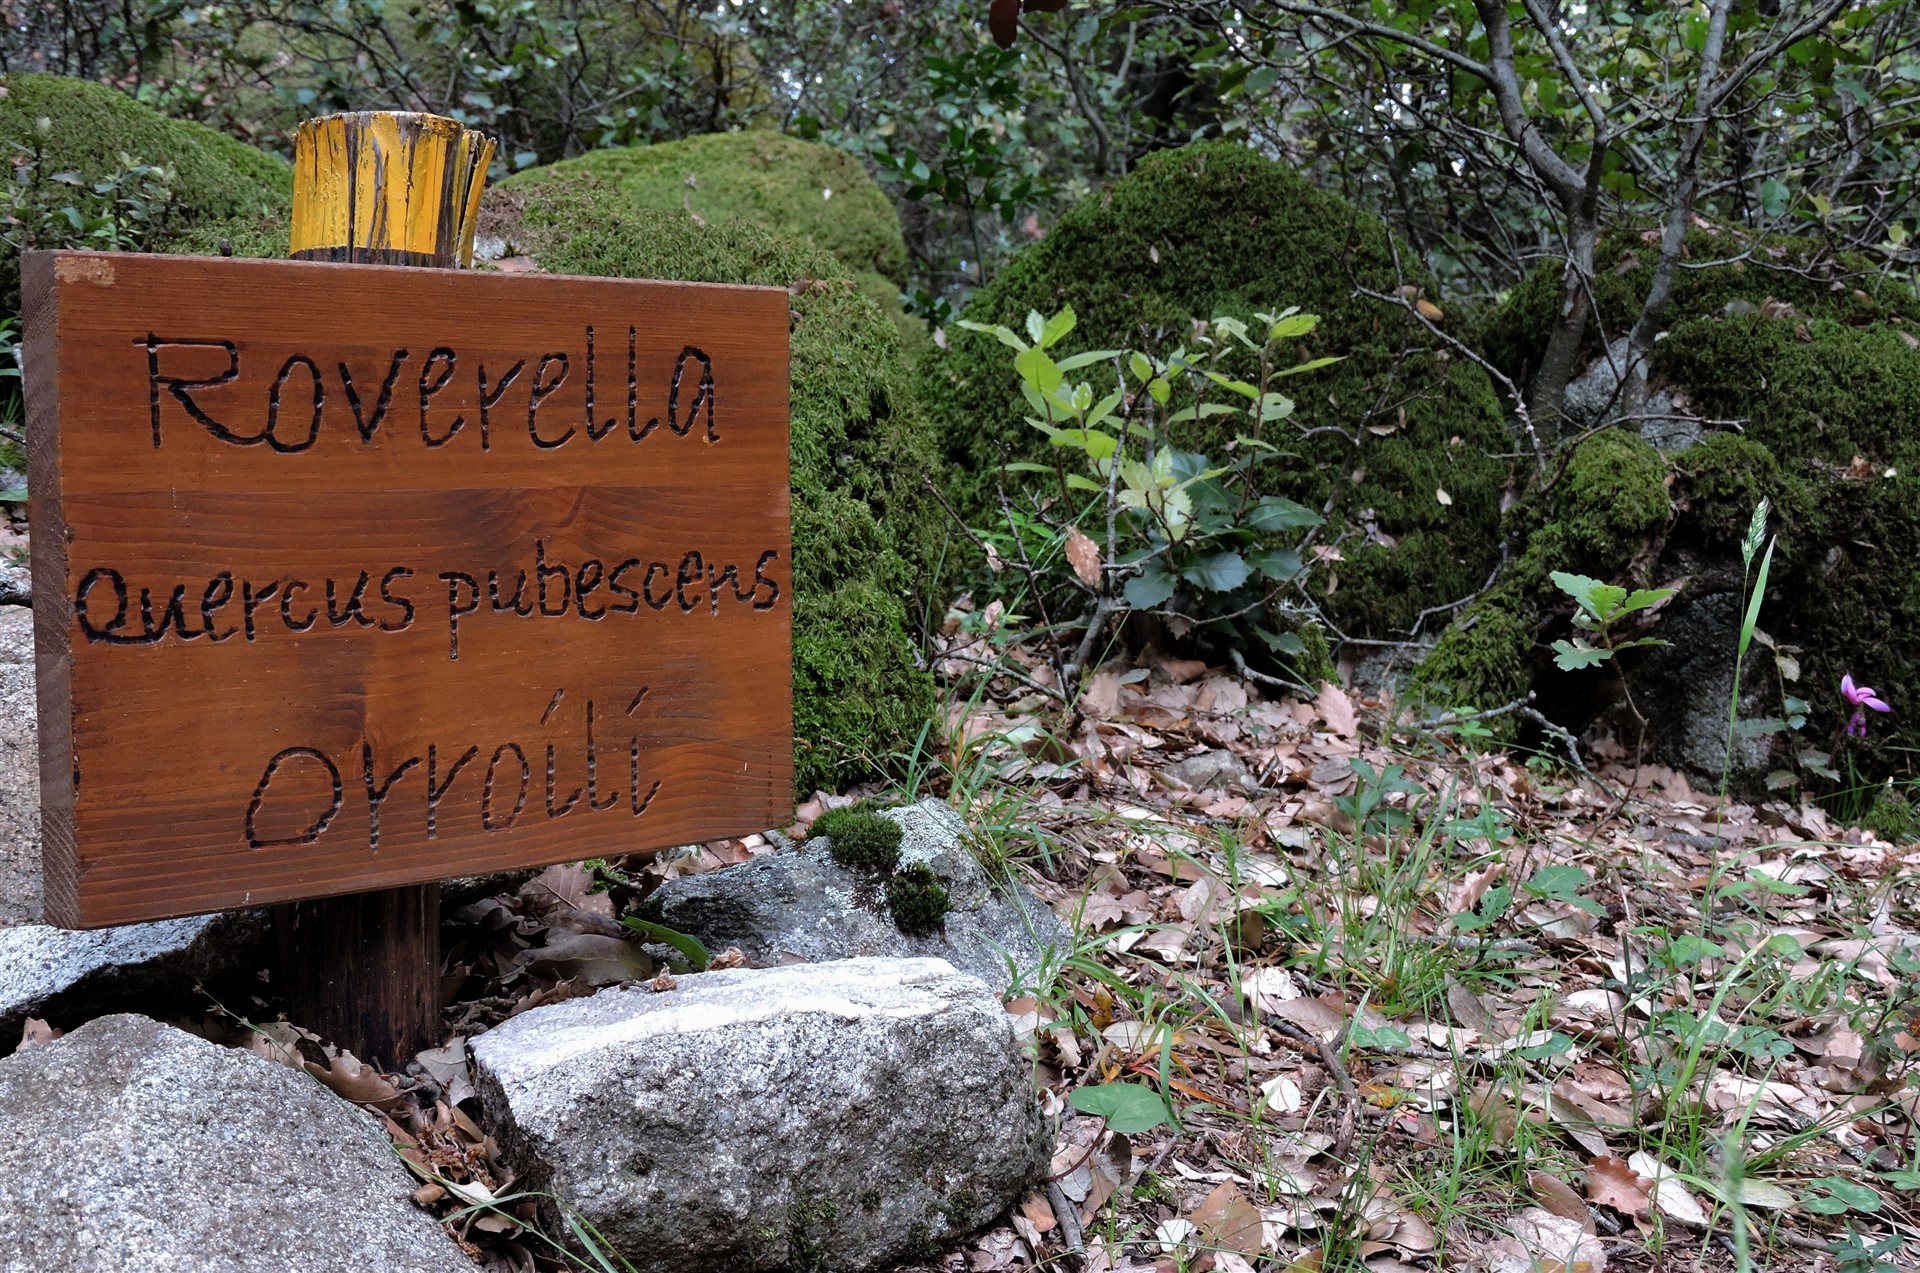 Roverella
Quercus pubescens
Orroílí